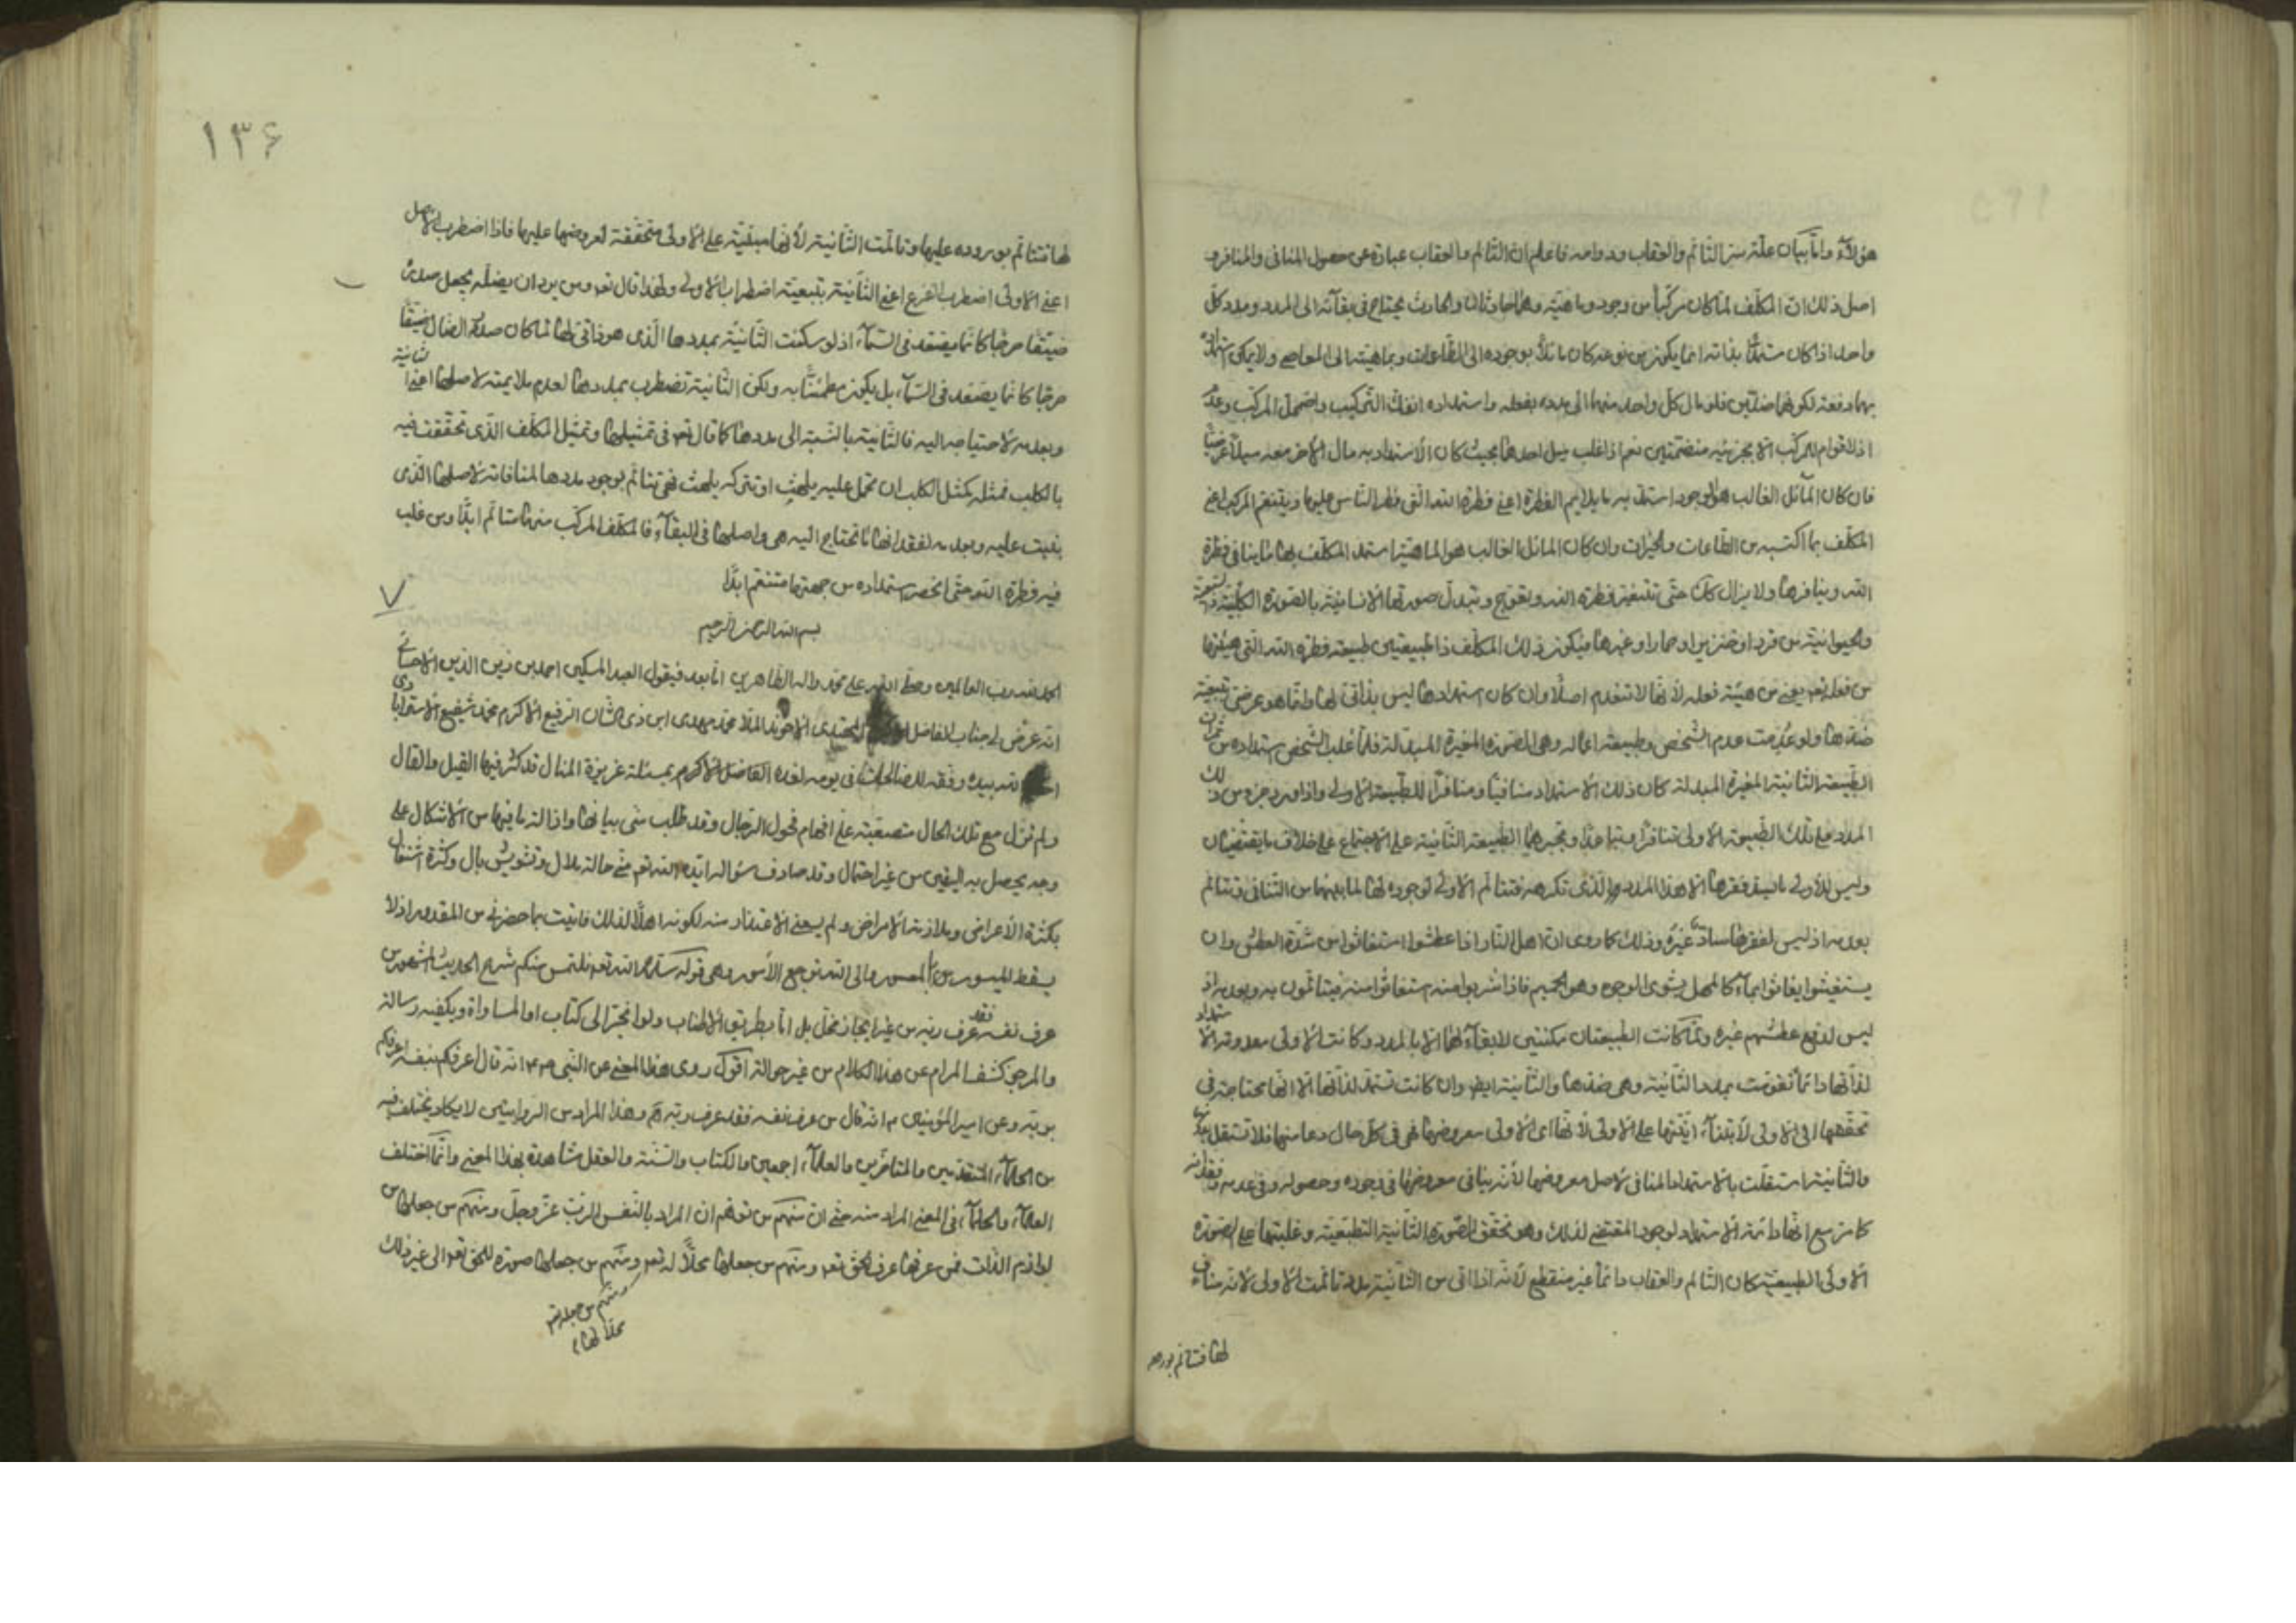 هؤلاء واما بيان علة سر التألم والعقاب ودوامه فاعلم ان التألم والعقاب عبارة عن حصول المنافي والمنافر و
اصل ذلك ان المكلف لما كان مركبا من وجود وماهية وهما حادثان والحادث يحتاج في بقائه الى المدد ومدد كل
واحد اذا كان مستمدا بذاته انما يكون من نوعه كان مائلا بوجوده الى الطاعات وبماهيته الى المعاصي ولا يمكن استمداده
بهما دفعة لكونهما ضدين فلو مال كل واحد منهما الى مدده بفعله واستمداده انفك التركيب واضمحل المركب وعدم
اذ لا قوام للمركب الا بجزئيه منضمتين نعم اذا غلب ميل احدهما بحيث كان الاستمداد به مال الاخر معه ميلا عرضيا
فان كان المائل الغالب هو الوجود استمد به ما يلايم الفطرة اعني فطرة الله التي فطر الناس عليها ويتنعم المركب اعني
المكلف بما اكتسبه من الطاعات والخيرات وان كان المائل الغالب هو الماهية استمد المكلف بها ما ينافي فطرة
الله وينافرها ولا يزال كك حتى تتغير فطرة الله وتعوج وتبدل صورتها الانسانية بالصورة الكلبية
والحيوانية من قرد او خنزير او حمار او غيرها فيكون ذلك المكلف ذا طبيعتين طبيعة فطرة الله التي هيئتها
من فعله تعم يعني من هيئة فعله لانها لا تنعدم اصلا وان كان استمدادها ليس بذاتي لها وانما هو عرضي بتبعية
ضدها ولو عدمت عدم الشخص وطبيعة اعماله وهي الصورة المغيرة المبدلة فلما غلب الشخص استمداده من ثمرات
الطبيعة الثانية المغيرة المبدلة كان ذلك الاستمداد منافيا ومنافرا للطبيعة الاولى واذا ورد جزء من ذلك
المدد على تلك الطبيعة الاولى تنافرا وتباعدا وتجبرهما الطبيعة الثانية على الاجتماع على خلاف ما يقتضيان
وليس للاولى ما يسد فقرها الا هذا المدد الذي تكرهه فتتألم الاولى لوجوده لها لما بينهما من التنافي وتتألم
بعدمه اذ ليس لفقرها سادّ غيره وذلك كما روى ان اهل النار اذا عطشوا استغاثوا من شدة العطش وان
يستغيثوا يغاثوا بماء كالمهل يشوى الوجوه وهو الحميم فاذا شربوا منه استغاثوا منه فيتألمون به وبعدمه اذ
ليس لدفع عطشهم غيره ولما كانت الطبيعتان ممكنتين لا بقاء لهما الا بالمدد وكانت الاولى معدومة الاستمداد
لذاتها دائما تقومت بمدد الثانية وهي ضدها والثانية ايضا وان كانت تستمد لذاتها الا انها محتاجة في
تحققها الى الاولى لابتناء انيتها على الاولى لانها اي الاولى معروضها فهي في كل حال دعامتها فلا تستقل بدونها
والثانية استقلت بالاستمداد المنافي لاصل معروضها لانه ينافي معروضها في وجوده وحصوله وفي عدمه وفقدانه
كما مر مع انها دائمة الاستمداد لوجود المقتضي لذلك وهو تحقق الصورة الثانية التطبعية وغلبتها على الصورة
الاولى الطبيعية كان التألم والعقاب دائما غير منقطع لانه اذا اتى من الثانية مدد تألمت الاولى لانه مناف
لها فتتألم بوروده
١٣۶
لها فتتألم بوروده عليها وتألمت الثانية لانها مبتنية على الاولى متحققة لعروضها عليها فاذا اضطرب الاصل
اعني الاولى اضطرب الفرع اعني الثانية بتبعية اضطراب الاولى ولهذا قال تعم ومن يرد ان يضله يجعل صدره
ضيقا حرجا كانما يصعد في السماء اذ لو سكنت الثانية بمددها الذي هو ذاتي لها لما كان صدر الضال ضيقا
حرجا كانما يصعد في السماء بل يكون مطمئنا به ولكن الثانية تضطرب بمددها لعدم ملايمته لاصلها اعني
وبعدمه لاحتياجه اليه فالثانية بالنسبة الى مددها كما قال تعم في تمثيلها وتمثيل المكلف الذي تحققت فيه
بالكلب فمثله كمثل الكلب ان تحمل عليه يلهث او تتركه يلهث فهي تتألم بوجود مددها لمنافاته لاصلها الذي
بنيت عليه وبعدمه لفقدانها ما تحتاج اليه هي واصلها في البقاء فالمكلف المركب منهما متألم ابدا ومن غلب
فيه فطرة الله حتى انحصر استمداده من جهتها متنعم ابدا
٧
بسم الله الرحمن الرحيم
الحمد لله رب العالمين وصلى الله على محمد واله الطاهرين اما بعد فيقول العبد المسكين احمد بن زين الدين الاحسائي
انه عرض لي جناب الفاضل المهتدى الاخوند الملا محمد مهدى ابن ذى الشان الرفيع الاكرم محمد شفيع الاسترابادى
الله بيده ووفقه للصالحات في يومه لغده الفاضل الاكرم بمسئلة عزيزة المنال قد كثر فيها القيل والقال
ولم تزل مع تلك الحال متصعبة على افهام فحول الرجال وقد طلب مني بيانها وازالة ما فيها من الاشكال على
وجه يحصل به اليقين من غير احتمال وقد صادف سؤاله ايده الله تعم مني حالة ملال وتشويش بال وكثرة اشتغال
بكثرة الاعراض وملازمة الامراض ولم يسعني الاعتذار منه لكونه اهلا لذلك فاتيت بما حضرني من المقدور اذ لا
يسقط الميسور بالمعسور والى الله ترجع الامور وهي قوله سلمه الله تعم نلتمس منكم شرح الحديث المشهور من
عرف نفسه فقد عرف ربه من غير ايجاز مخل بل اما بطريق الاطناب ولو انجر الى كتاب او المساواة ويكفيه رسالة
والمرجو كشف المرام عن هذا الكلام من غير حوالة اقول روى هذا المعنى عن النبي ص انه قال اعرفكم بنفسه اعرفكم
بربه وعن امير المؤمنين ع انه قال من عرف نفسه فقد عرف ربه وهذا المراد من الروايتين لا يكاد يختلف فيه
من الحكماء المتقدمين والمتاخرين والعلماء اجمعين والكتاب والسنة والعقل شاهدة بهذا المعنى وانما اختلف
العلماء والحكماء في المعنى المراد منه حتى ان منهم من توهم ان المراد بالنفس الرب عز وجل ومنهم من جعلها من
لوازم الذات فمن عرفها عرف الحق تعم ومنهم من جعلها محلا له تعم ومنهم من جعلها صورة للحق تعم الى غير ذلك
ومنهم من جعله تعم
محلا لها